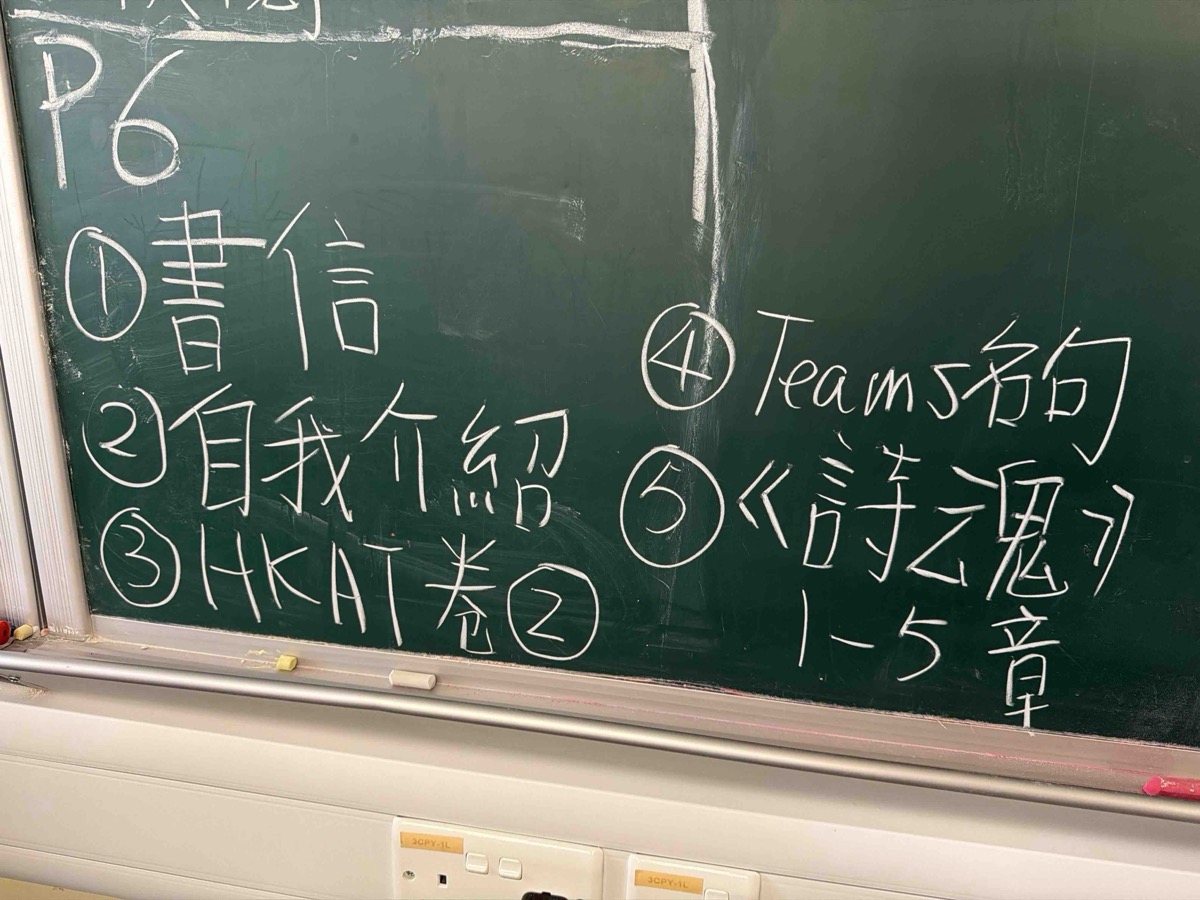 P6
① 書信
② 自我介紹
③ HKAT 卷②
④ Teams 名句
⑤ 《詩魂》
1-5章
3CPY-1L
3CPY-1L